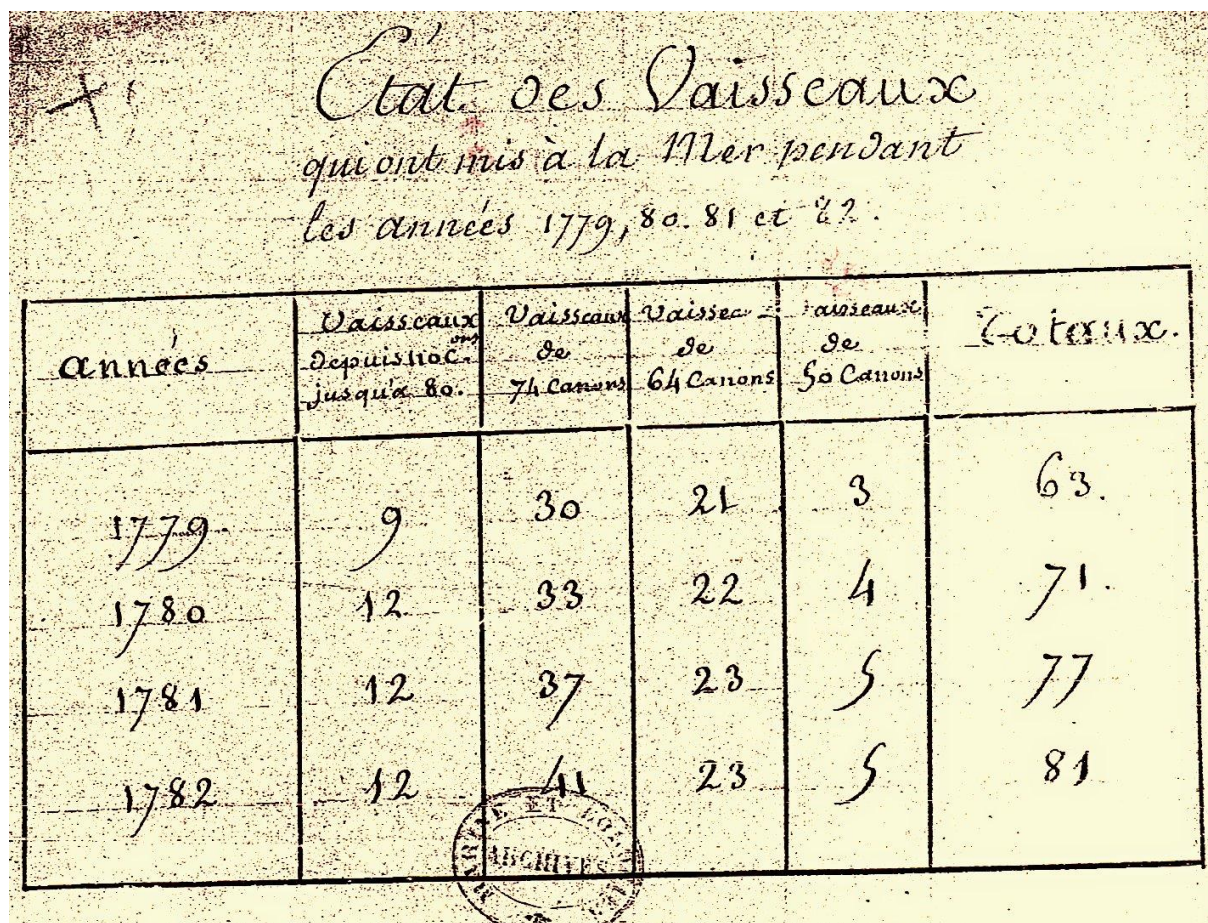 État des Vaisseaux
qui ont mis à la Mer pendant
les années 1779, 80. 81 et 82.
années Vaisseaux depuis 110 C.ons jusqu'à 80. Vaisseaux de 74 Canons Vaisseaux de 64 Canons Vaisseaux de 50 Canons Toteaux.
1779. 9 30 21 3 63.
1780 12 33 22 4 71.
1781 12 37 23 5 77
1782 12 41 23 5 81
MARINE ET COLONIES
ARCHIVES